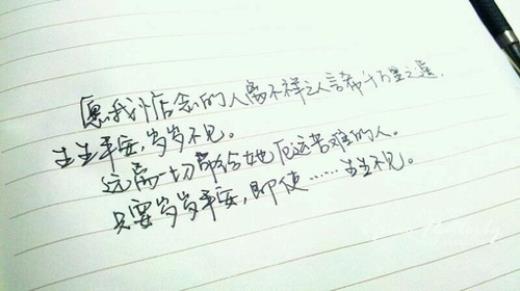 愿我小信念的人离不祥之人言希千万里之遥.
生生平安,岁岁不见。
远离一切带给她厄运苦难的人。
只要岁岁平安,即使……生生不见。